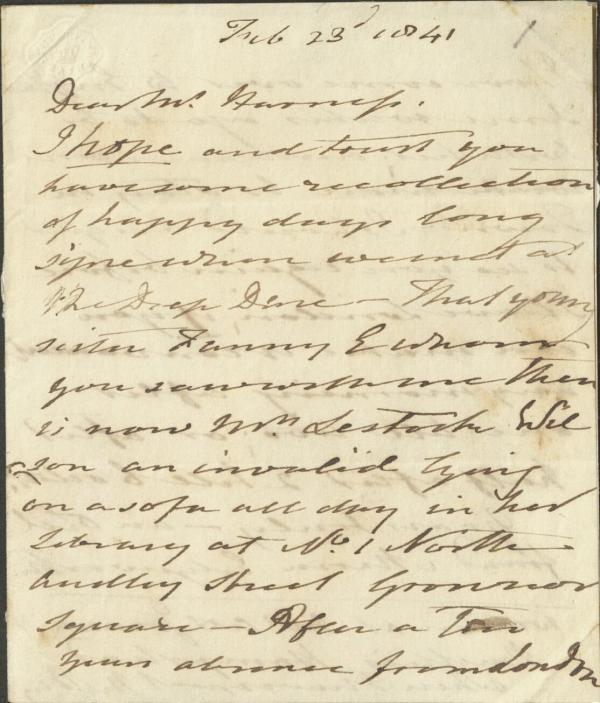 Feb 23d 1841
1
Dear Mr. Harness.
I hope and trust you
have some recollection
of happy days long
syne when we met at
the Deep Dene - That young
sister Fanny E whom
you saw with me then
is now Mrs Lestock Wil
son an invalid lying
on a sofa all day in her
Library at No. 1 North
Audley Street Grosvenor
Square - After a Ten
years absence from London